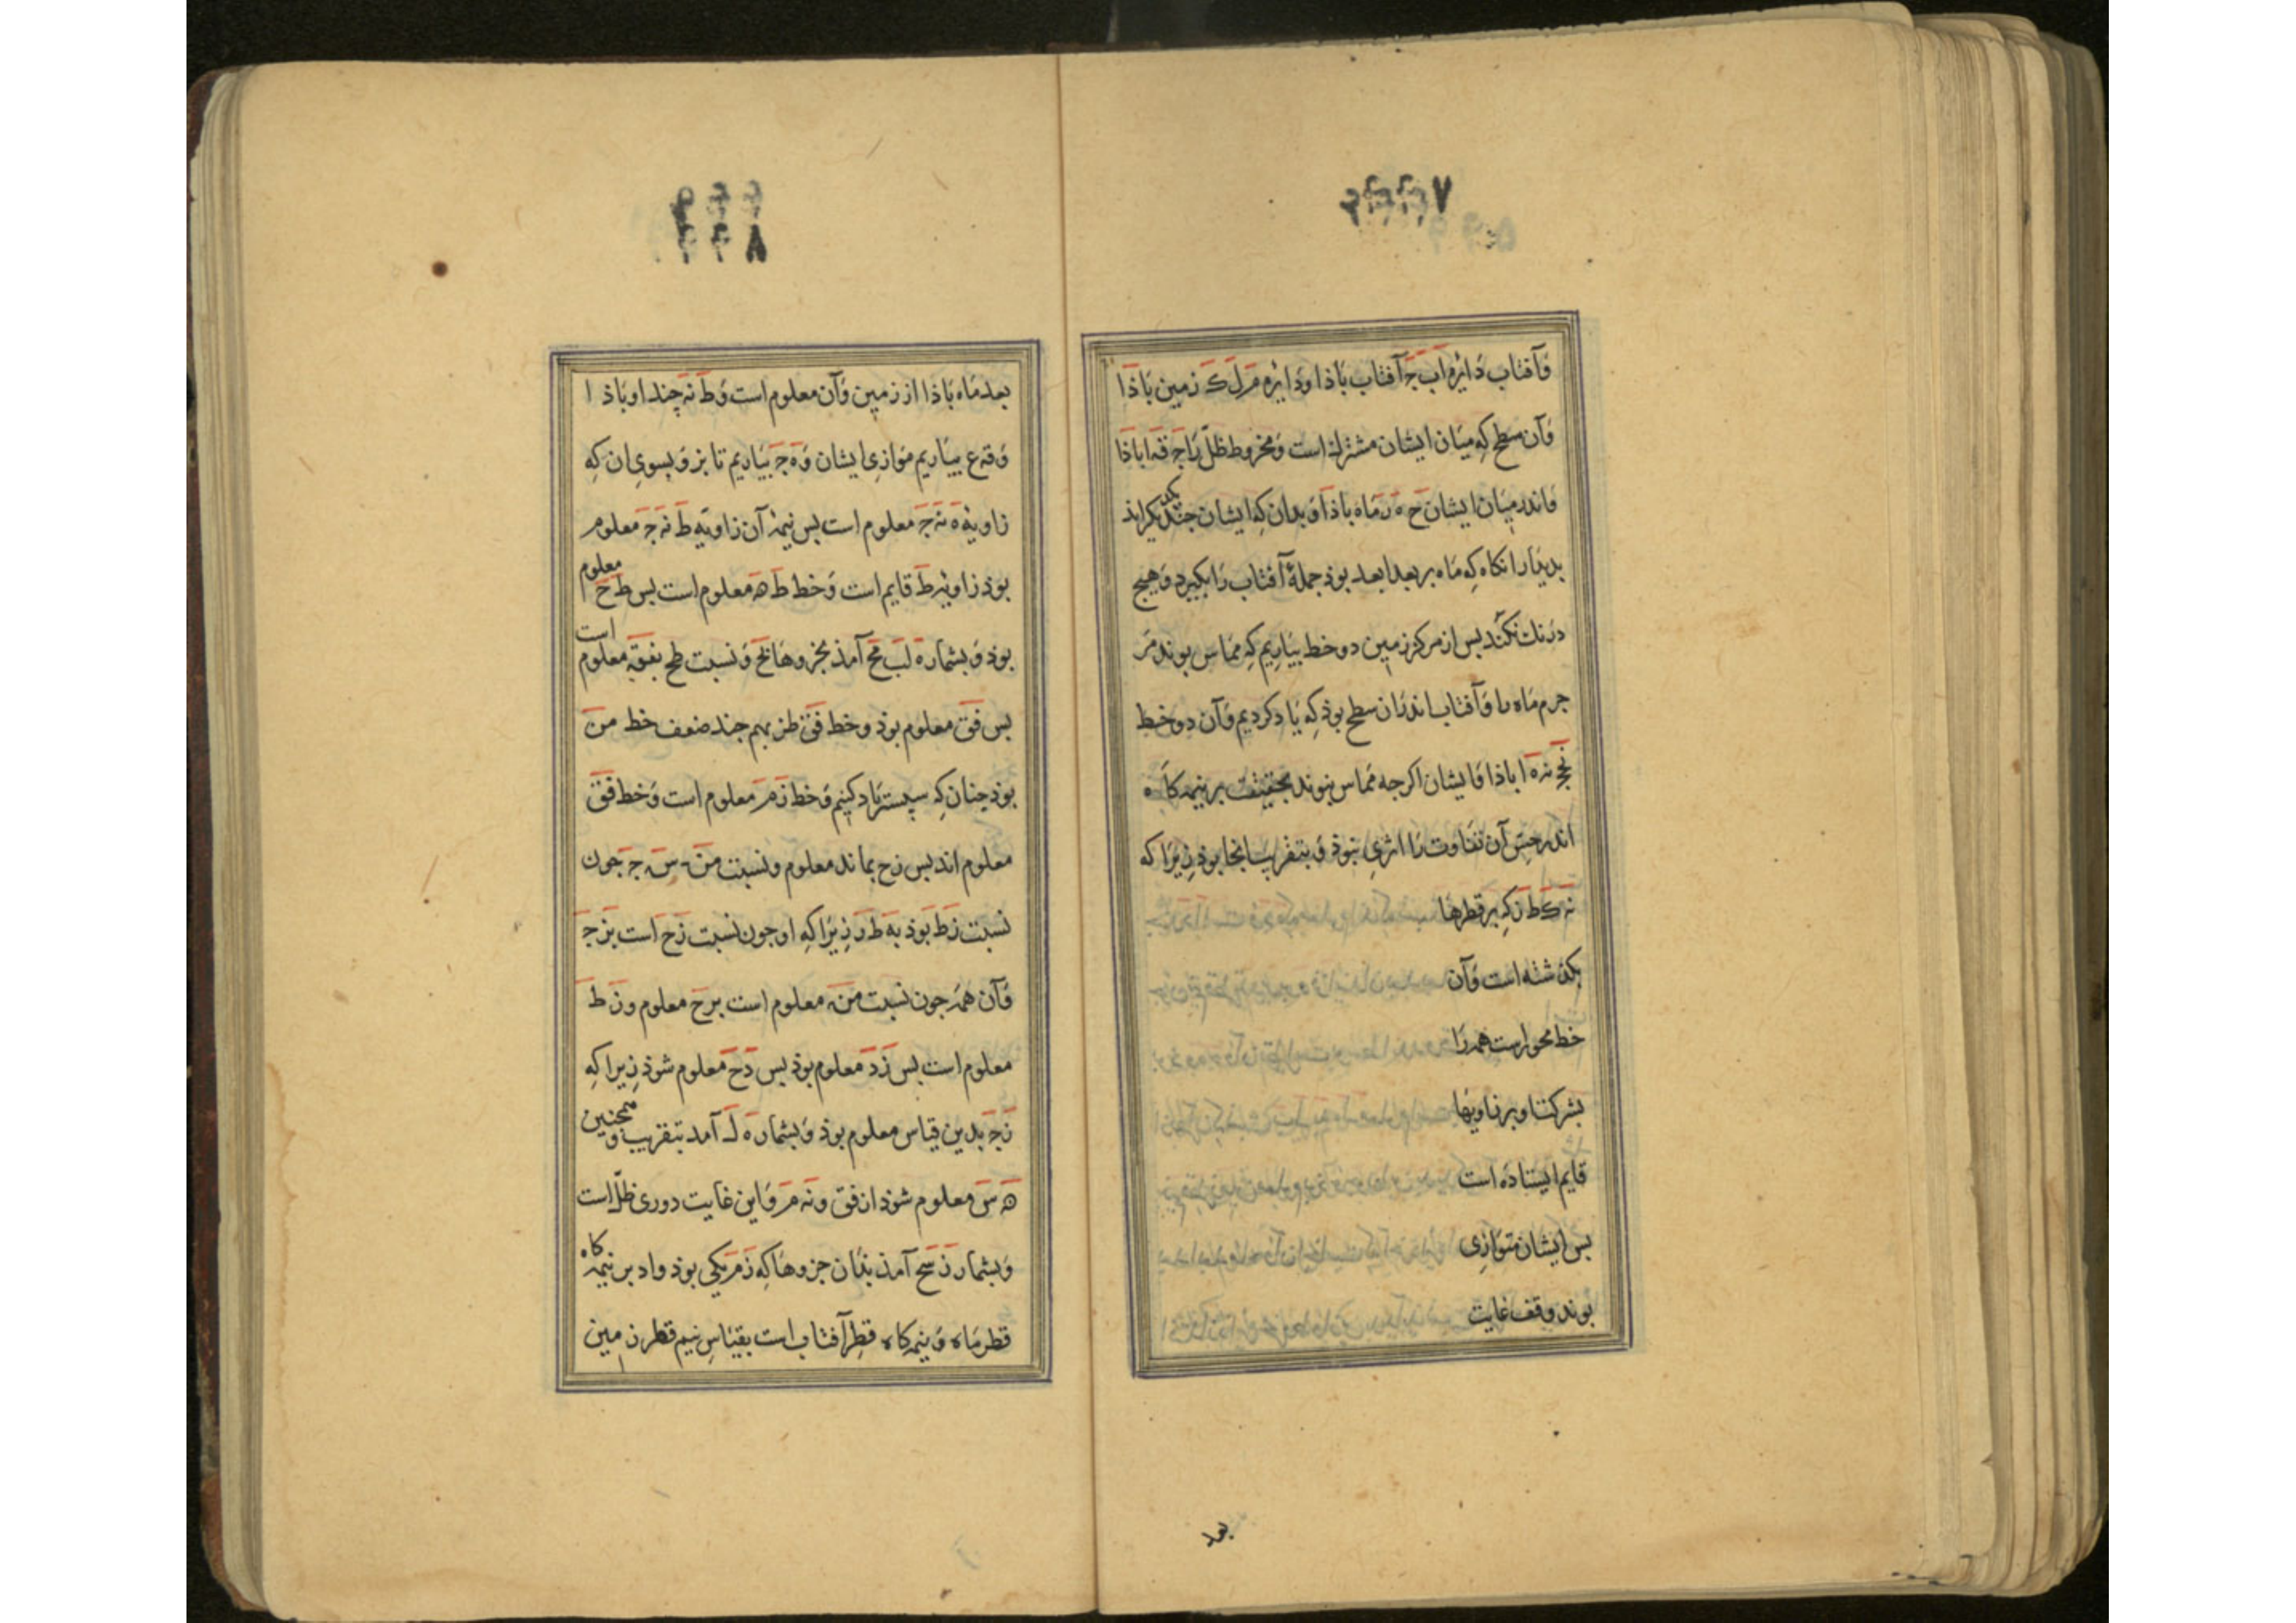 وآفتاب دایره اب ج آفتاب باذا ودایره م ل ک زمین باذا
وآن سطح که میان ایشان مشترک است ومخروط ظل را ج قه اباذا
واندر میان ایشان ح ه ز ماه باذا وبدان که ایشان جند یکدیگراند
بدیدار انکاه که ماه بر بعد ابعد بوذ جملهٔ آفتاب را بکیرد وهیج
درنك نکند بس از مرکز زمین دو خط بیاریم که مماس بوند مر
جرم ماه را وآفتاب اندران سطح بوذ که یاد کردیم وآن دو خط
نج نه اباذا وایشان اکرجه مماس نبوند بحقیقت بر نیمه کاه
اندر حس آن تفاوت را اثری نبوذ وبتقریب انجا بوذ زیرا که
نه ک ط ز که بر قطرها
بکذشته است وآن
خط محور است همه را
بشرکت او بر زاویها
قایم ایستاده است
بس ایشان متوازی
بوند وقف غایت
بعد
بعد ماه باذا از زمین وآن معلوم است وط نه چند او باذ ا
وقه ع بیاریم موازی ایشان وه ج بیاریم تا بز وبسوی ان که
زاویهٔ ه نه ج معلوم است بس نیمهٔ آن زاویه ط نه ج معلوم
بوذ زاویه ط قایم است وخط ط ه معلوم است بس ط ح معلوم
بوذ وبشماره لب مح آمذ بجزوها یخ ونسبت طح بفقه معلوم است
بس فق معلوم بوذ وخط فق طز بهم جند ضعف خط من
بوذ چنان که سپستر یاد کنیم وخط زم معلوم است وخط فق
معلوم اند بس زح بماند معلوم ونسبت من س ج جون
نسبت زط بوذ به ط ز زیرا که او جون نسبت زح است بز ج
وآن همه جون نسبت منه معلوم است برح معلوم وز ط
معلوم است بس زد معلوم بوذ بس دح معلوم شوذ زیرا که
زج بدین قیاس معلوم بوذ وبشماره لـ آمد بتقریب وهمچنین
ه س معلوم شوذ از فق ونه م واین غایت دوری ظل است
وبشمار ن سح آمذ بذان جزوها که زم یکی بوذ واد بر نیمه کاه
قطر ماه ونیمه کاه قطر آفتاب است بقیاس نیم قطر زمین